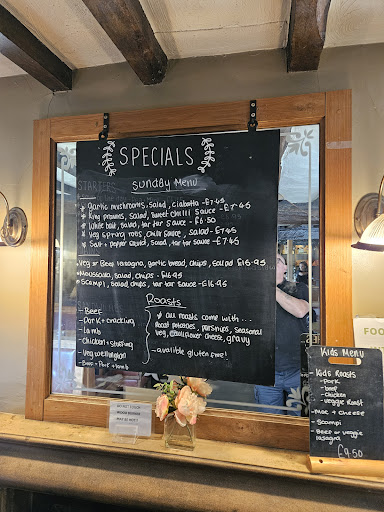 SPECIALS
STARTERS
Sunday Menu
* Garlic mushrooms, salad, ciabatta - £7.45
* King prawns, salad, sweet chilli sauce - £7.45
* White bait, salad, tar tar sauce - £6.50
* Veg spring rolls, chilli sauce, salad - £7.45
* Salt + pepper squid, salad, tar tar sauce - £7.45
* Veg or Beef lasagna, garlic bread, chips, salad £15.95
* Moussaka, salad, chips - £16.95
* Scampi, salad, chips, tar tar sauce - £16.95
Roasts
- Beef
- Pork + crackling
- Lamb
- Chicken + stuffing
- Veg wellington
- Beef + Pork + Lamb
* all roasts come with...
Roast potatoes, parsnips, seasonal
veg, cauliflower cheese, gravy
- avalible gluten free!
FOO
Kids Menu
- Kids Roasts
- Pork
- beef
- chicken
- veggie Roast
- Mac + Cheese
- Scampi
- Beef or veggie
lasagna
£9.50